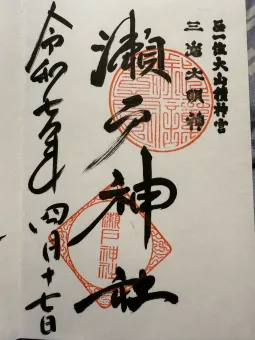 正一位大山積神宮
三島大明神
瀬戸神社
令和七年四月十七日
瀬戸神社